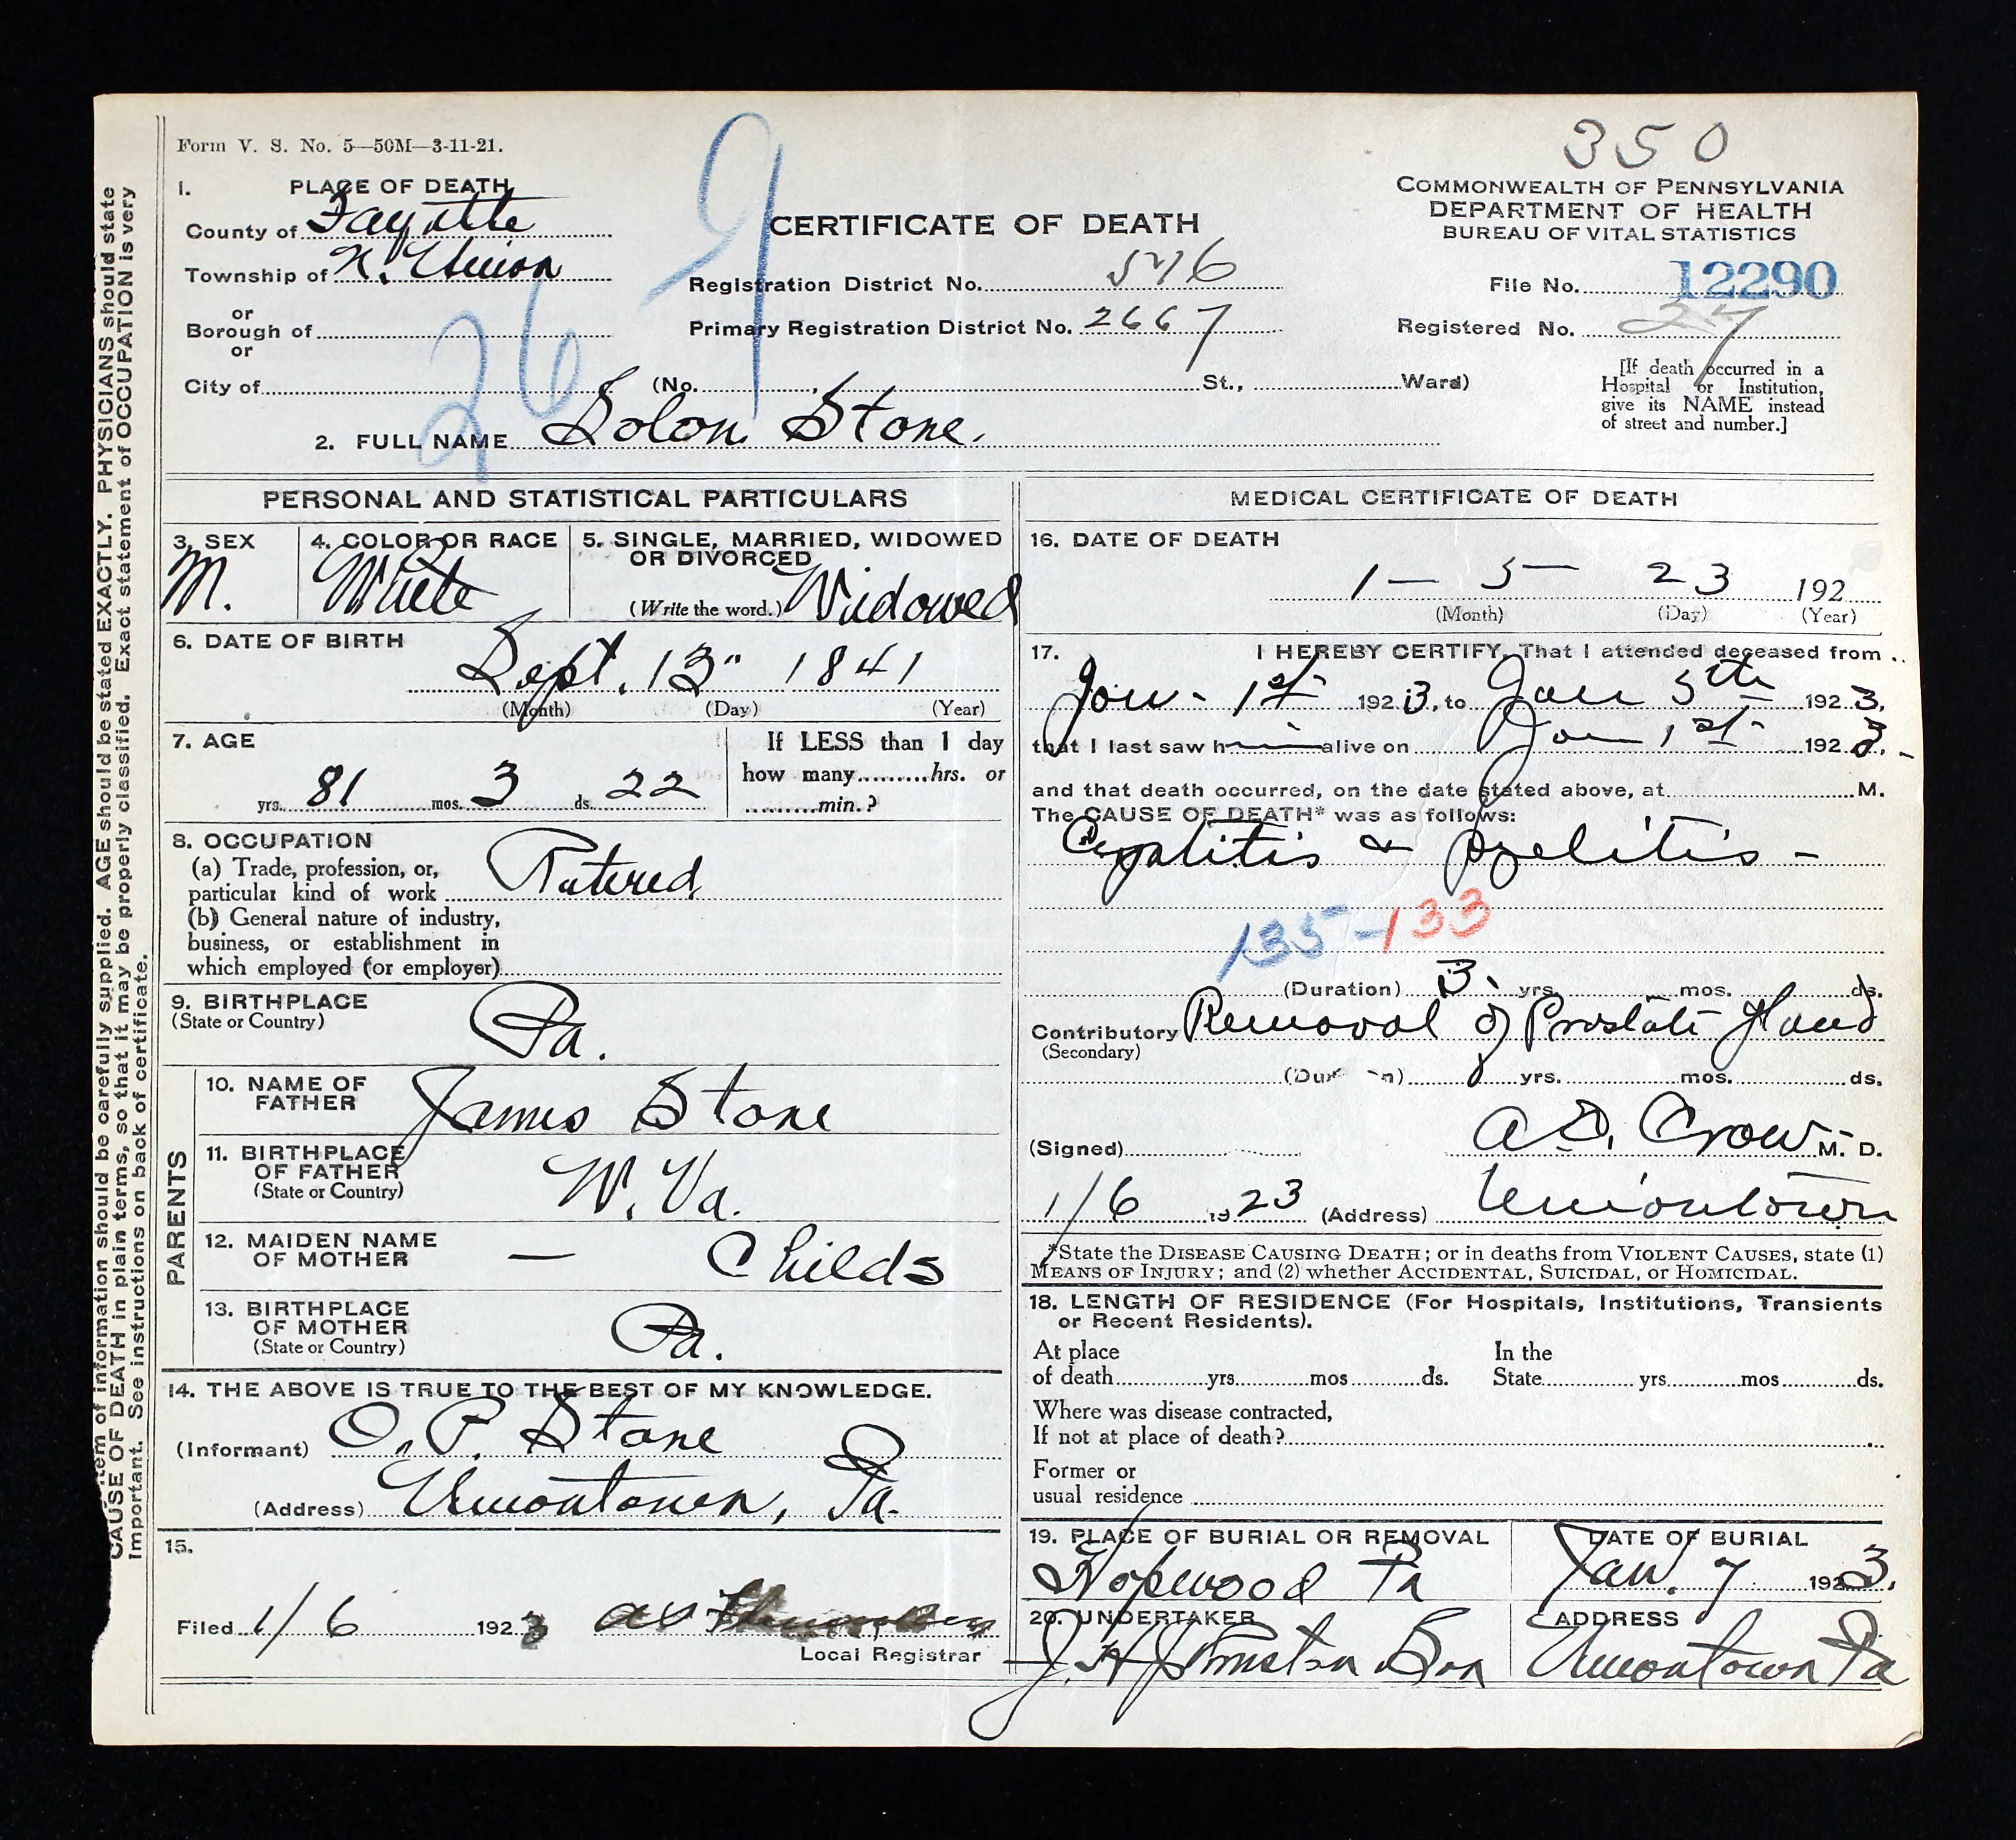 350
Form V. S. No. 5—50M—3-11-21.
COMMONWEALTH OF PENNSYLVANIA
DEPARTMENT OF HEALTH
BUREAU OF VITAL STATISTICS
CERTIFICATE OF DEATH
1. PLACE OF DEATH
County of Fayette
Township of N. Union
or
Borough of
or
City of
(No. , St., Ward)
26 9
Registration District No. 546
Primary Registration District No. 2667
File No. 12290
Registered No. 27
[If death occurred in a
Hospital or Institution,
give its NAME instead
of street and number.]
2. FULL NAME Solon Stone.
PERSONAL AND STATISTICAL PARTICULARS
3. SEX
M.
4. COLOR OR RACE
White
5. SINGLE, MARRIED, WIDOWED
OR DIVORCED
(Write the word.) Widowed
6. DATE OF BIRTH
Sept. 13" 1841
(Month) (Day) (Year)
7. AGE
yrs. 81 mos. 3 ds. 22
If LESS than 1 day
how many.........hrs. or
.........min.?
8. OCCUPATION
(a) Trade, profession, or,
particular kind of work Retired
(b) General nature of industry,
business, or establishment in
which employed (or employer)
9. BIRTHPLACE
(State or Country)
Pa.
PARENTS
10. NAME OF
FATHER James Stone
11. BIRTHPLACE
OF FATHER
(State or Country) W. Va.
12. MAIDEN NAME
OF MOTHER — Childs
13. BIRTHPLACE
OF MOTHER
(State or Country) Pa.
14. THE ABOVE IS TRUE TO THE BEST OF MY KNOWLEDGE.
(Informant) O. P. Stone
(Address) Uniontown, Pa.
15.
Filed 1/6 1923
Local Registrar
MEDICAL CERTIFICATE OF DEATH
16. DATE OF DEATH
1 — 5 — 23 192
(Month) (Day) (Year)
17. I HEREBY CERTIFY, That I attended deceased from
Jan - 1st 1923, to Jan 5th 1923,
that I last saw h alive on Jan 1st 1923.
and that death occurred, on the date stated above, at M.
The CAUSE OF DEATH* was as follows:
Cystitis & pyelitis —
135-133
(Duration) 3. yrs. mos. ds.
Contributory Removal of Prostate Gland
(Secondary)
(Duration) yrs. mos. ds.
(Signed) Crow M. D.
1/6 1923 (Address) Uniontown
*State the DISEASE CAUSING DEATH; or in deaths from VIOLENT CAUSES, state (1)
MEANS OF INJURY; and (2) whether ACCIDENTAL, SUICIDAL, or HOMICIDAL.
18. LENGTH OF RESIDENCE (For Hospitals, Institutions, Transients
or Recent Residents).
At place In the
of death yrs mos ds. State yrs mos ds.
Where was disease contracted,
If not at place of death?
Former or
usual residence
19. PLACE OF BURIAL OR REMOVAL
Hopwood Pa
DATE OF BURIAL
Jan. 7 1923.
20. UNDERTAKER
J. H. Johnston Son
ADDRESS
Uniontown Pa
item of information should be carefully supplied. AGE should be stated EXACTLY. PHYSICIANS should state
CAUSE OF DEATH in plain terms, so that it may be properly classified. Exact statement of OCCUPATION is very
Important. See instructions on back of certificate.